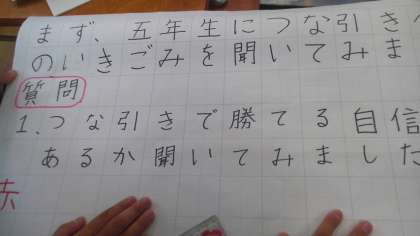 まず、五年生につな引き
のいきごみを聞いてみま
質問
1、つな引きで勝てる自信
あるか聞いてみました
赤